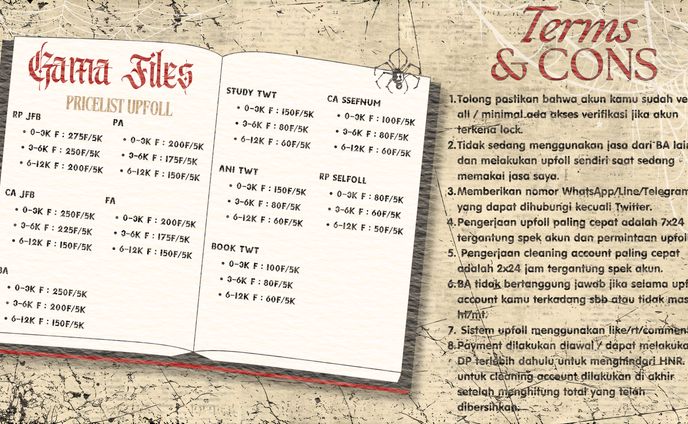 Gama Files
PRICELIST UPFOLL
RP JFB
• 0-3K F : 275F/5K
• 3-6K F : 250F/5K
• 6-12K F : 200F/5K
PA
• 0-3K F : 200F/5K
• 3-6K F : 175F/5K
• 6-12K F : 150F/5K
CA JFB
• 0-3K F : 250F/5K
• 3-6K F : 225F/5K
• 6-12K F : 150F/5K
FA
• 0-3K F : 200F/5K
• 3-6K F : 175F/5K
• 6-12K F : 150F/5K
BA
• 0-3K F : 250F/5K
• 3-6K F : 200F/5K
• 6-12K F : 150F/5K
STUDY TWT
• 0-3K F : 150F/5K
• 3-6K F : 80F/5K
• 6-12K F : 60F/5K
CA SSEFNUM
• 0-3K F : 100F/5K
• 3-6K F : 80F/5K
• 6-12K F : 60F/5K
ANI TWT
• 0-3K F : 150F/5K
• 3-6K F : 80F/5K
• 6-12K F : 60F/5K
RP SELFOLL
• 0-3K F : 80F/5K
• 3-6K F : 60F/5K
• 6-12K F : 50F/5K
BOOK TWT
• 0-3K F : 100F/5K
• 3-6K F : 80F/5K
• 6-12K F : 60F/5K
Terms
& CONS
1.Tolong pastikan bahwa akun kamu sudah ve
ali / minimal ada akses verifikasi jika akun
terkena lock.
2.Tidak sedang menggunakan jasa dari BA lai
dan melakukan upfoll sendiri saat sedang
memakai jasa saya.
3.Memberikan nomor WhatsApp/Line/Telegram
yang dapat dihubungi kecuali Twitter.
4.Pengerjaan upfoll paling cepat adalah 7x24
tergantung spek akun dan permintaan upfol
5. Pengerjaan cleaning account paling cepat
adalah 2x24 jam tergantung spek akun.
6.BA tidak bertanggung jawab jika selama upf
account kamu terkadang sbb atau tidak mas
ht/mt.
7. Sistem upfoll menggunakan like/rt/comment
8.Payment dilakukan diawal / dapat melakuka
DP terlebih dahulu untuk menghindari HNR.
untuk cleaning account dilakukan di akhir
setelah menghitung total yang telah
dibersihkan.